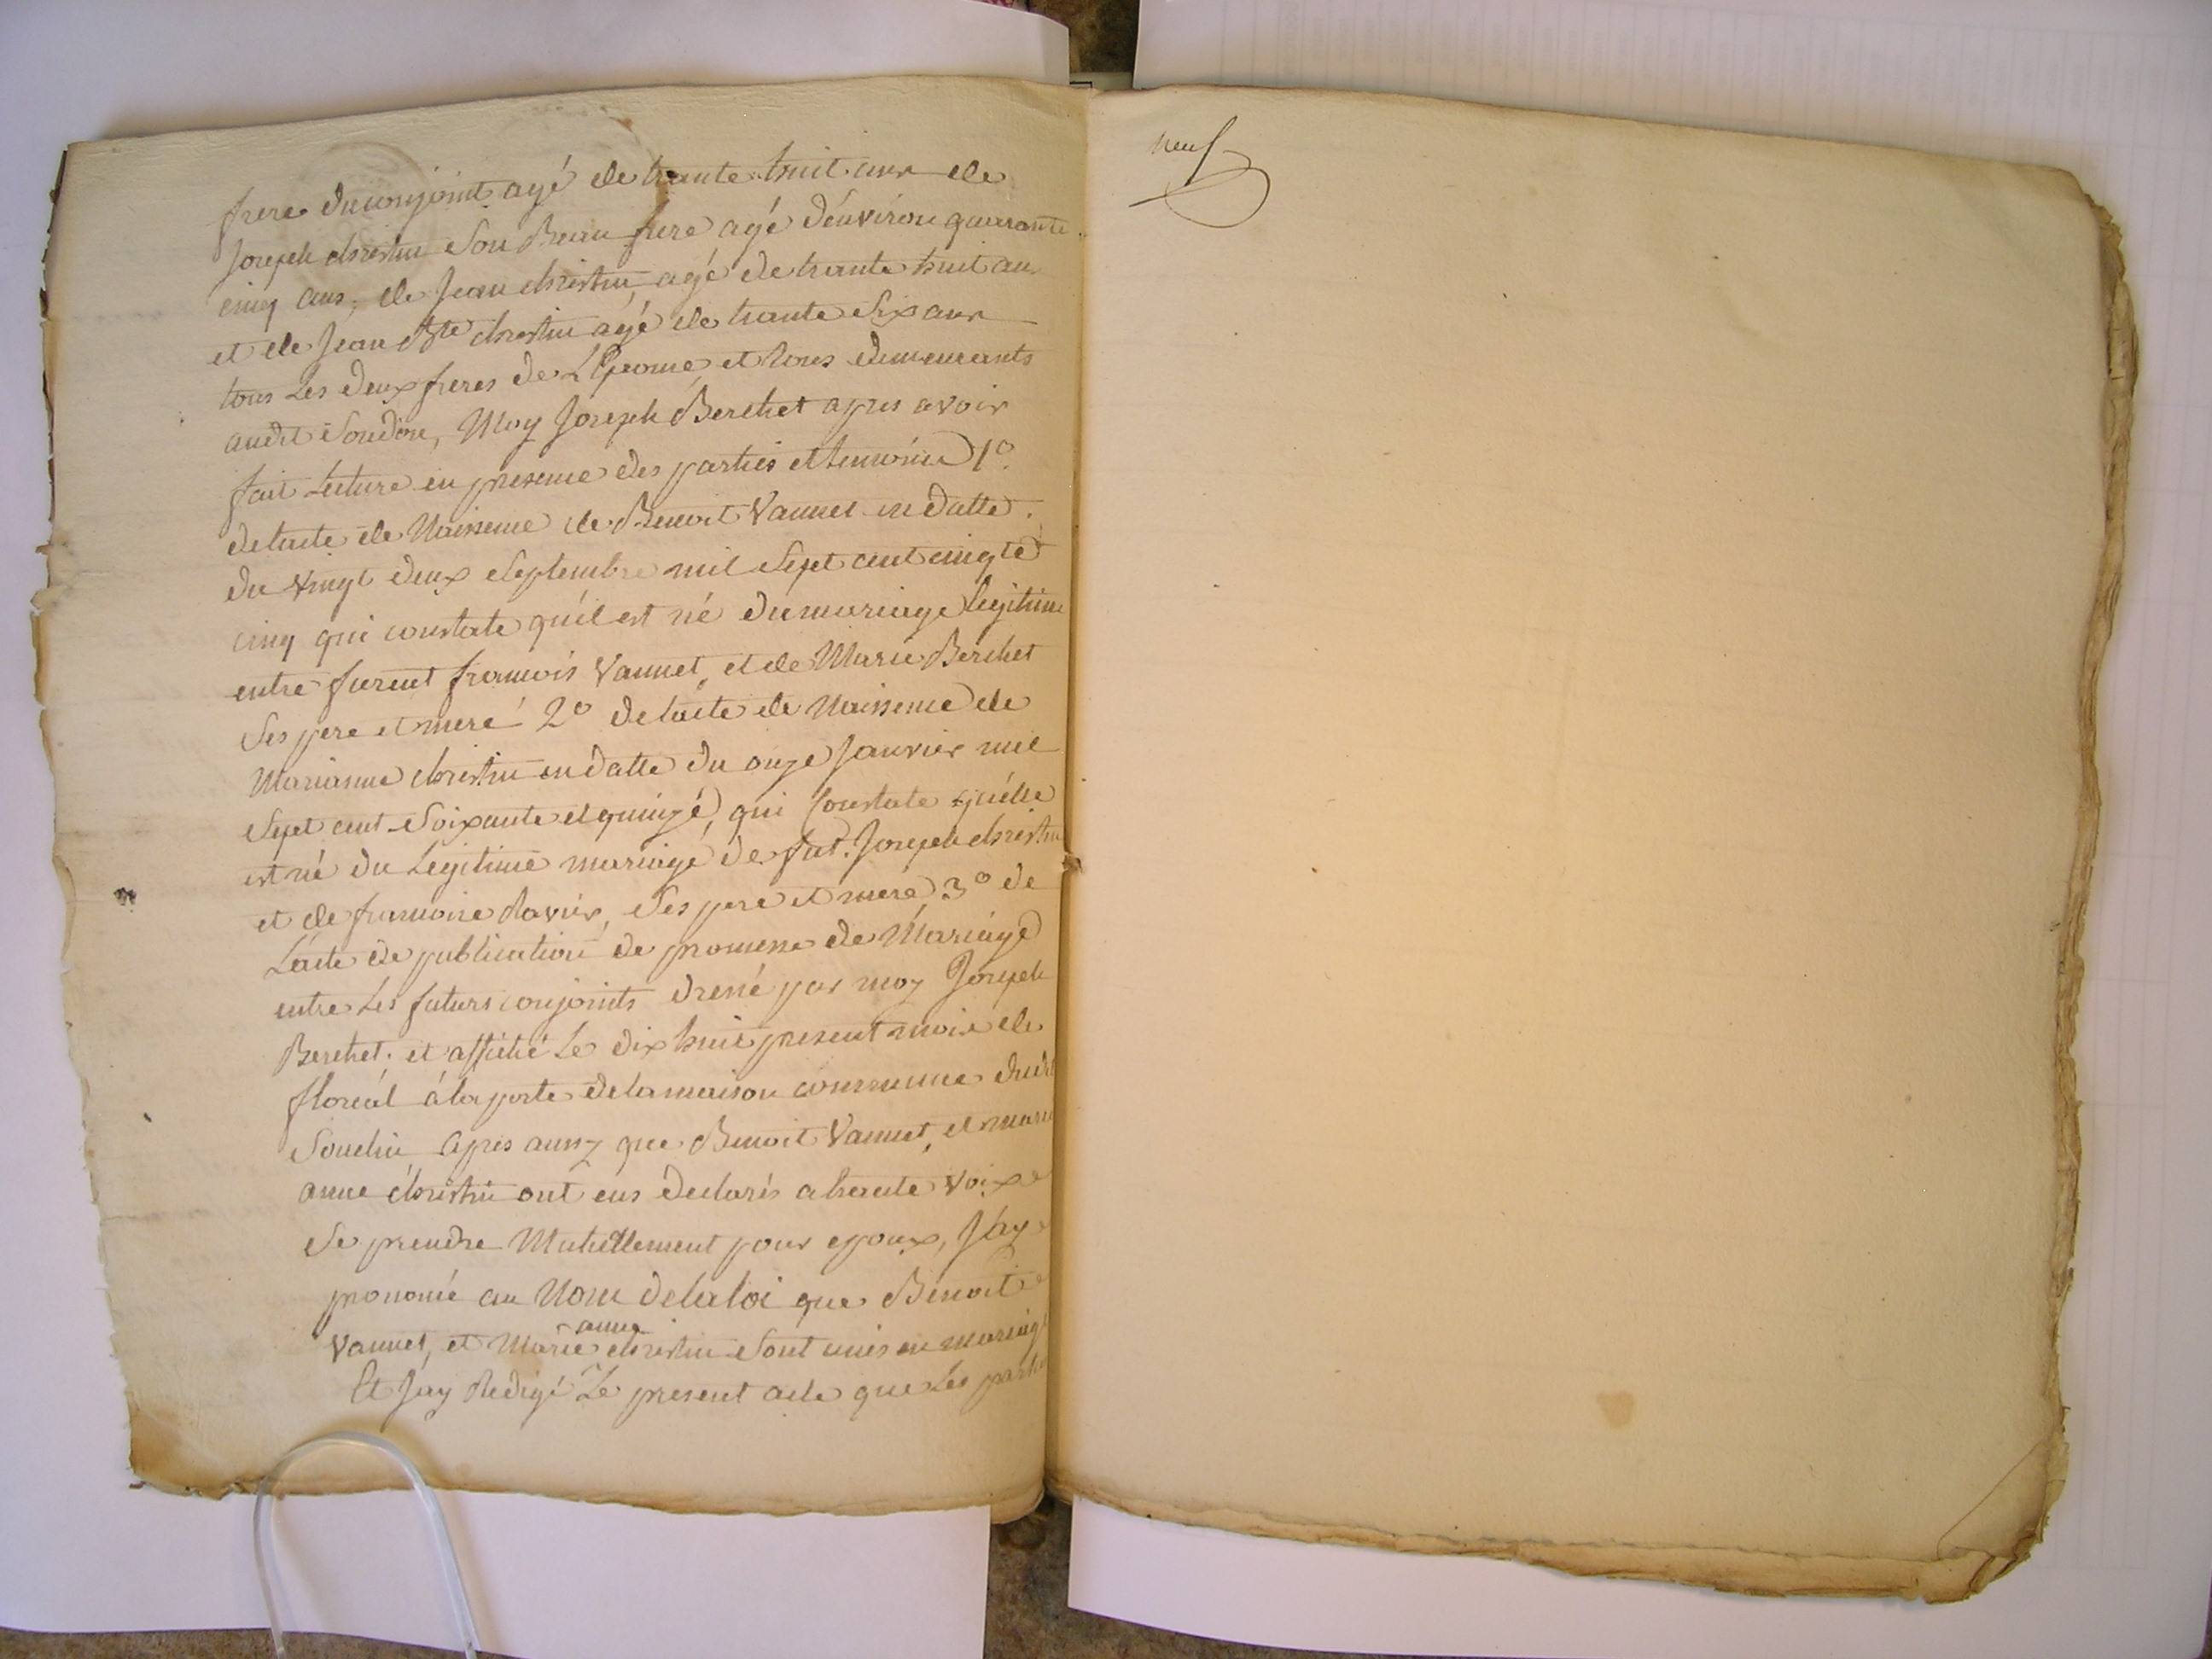 frere du conjoint agé de trante huit ans de
Joseph christin Son Beau frere agé d'environ quarante
cinq ans, de Jean christin, agé de trante huit ans
et de Jean Bte christin agé de trante Six ans
tous Les deux freres de L'Epouse et tous demeurants
audit Moy Joseph Berchet apres avoir
fait Lecture en presence des parties et temoins 1o.
de lacte de Naissence de Benoit Vannet en datte
du vingt deux Septembre mil Sept cent cinqte
cinq qui constate qu'il est né du mariage legitime
entre furent francois Vannet, et de Marie Berchet
Ses pere et mere 2o de lacte de Naissence de
Marianne christin en datte du onze Janvier mil
Sept cent Soixante et quinze, qui Constate qu'elle
est né du Legitime mariage de fut. Joseph christin
et de francoise Ravier, Ses pere et mere 3o de
L'acte de publication de promesse de Mariage
entre Les futurs conjoints dressé par moy Joseph
Berchet. et affiché Le dix huit present mois de
floreal a la porte de la maison commune dudit
Souclin apres aussy que Benoit Vannet, et marie
anne christin ont eus declarés a haute voix
Se prendre Mutuellement pour epoux, J'ay
prononcé au Nom de la loi que Benoit
anne
Vannet, et Marie christin Sont unis en mariage
Et J'ay Redigé Le present acte que Les parties
neuf